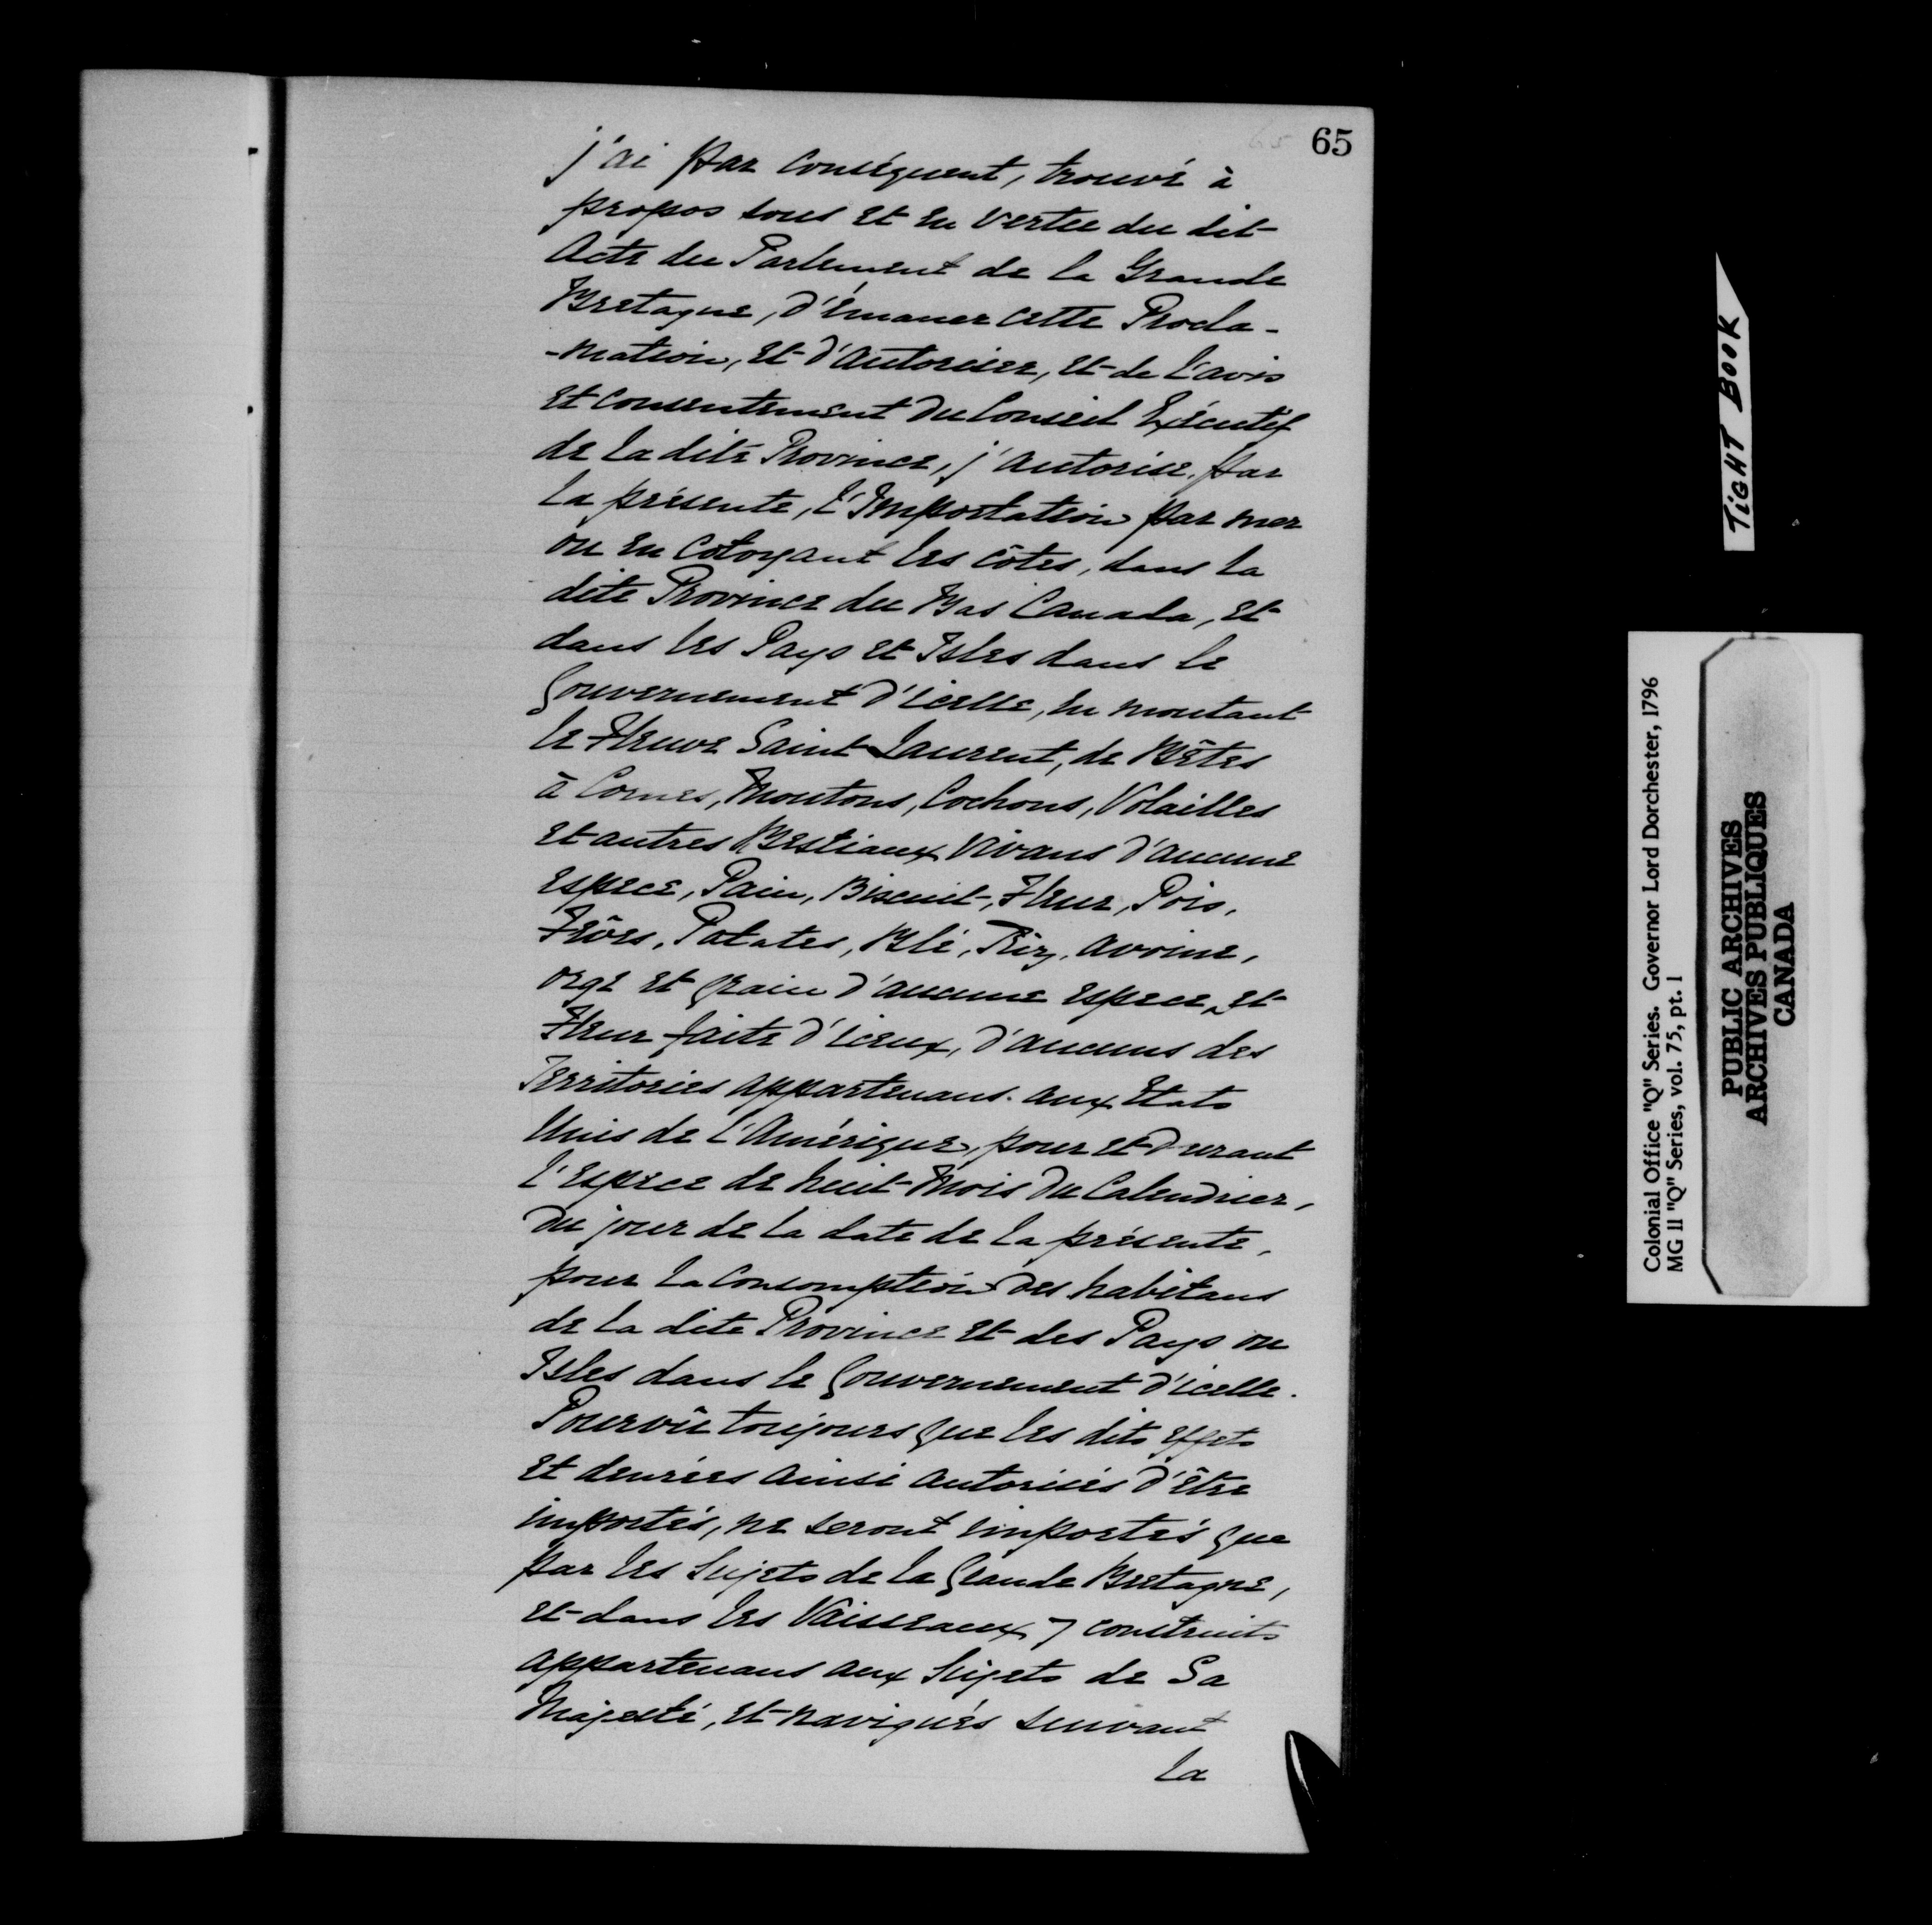 65 65
j'ai par conséquent, trouvé à
propos sous et en vertu du dit
Acte du Parlement de la Grande
Bretagne, d'émaner cette Procla-
-mation, et d'autoriser, et de l'avis
et consentement du Conseil Exécutif
de la dite Province, j'autorise par
la présente, l'Importation par mer
ou en cotoyant les côtes, dans la
dite Province du Bas Canada, et
dans les Pays et Isles dans le
Gouvernement d'icelle, en montant
le Fleuve Saint Laurent, de Bêtes
à Cornes, Moutons, Cochons, Volailles
et autres Bestiaux vivans d'aucune
espece, Pain, Biscuit, Fleur, Pois,
Fêves, Patates, Blé, Riz, avoine,
orge et grain d'aucune espece, et
Fleur faite d'iceux, d'aucuns des
Territoires appartenans aux Etats
Unis de l'Amérique, pour et durant
l'espece de huit Mois du Calendrier,
du jour de la date de la présente,
pour la Consomption des habitans
de la dite Province et des Pays ou
Isles dans le Gouvernement d'icelle.
Pourvû toujours que les dits effets
et denrées ainsi autorisés d'être
importés, ne seront importés que
par les Sujets de la Grande Bretagne,
et dans les Vaisseaux 7 construits
appartenans aux Sujets de Sa
Majesté, et navigués suivant
la
TIGHT BOOK
Colonial Office "Q" Series. Governor Lord Dorchester, 1796
MG 11 "Q" Series, vol. 75, pt. 1
PUBLIC ARCHIVES
ARCHIVES PUBLIQUES
CANADA